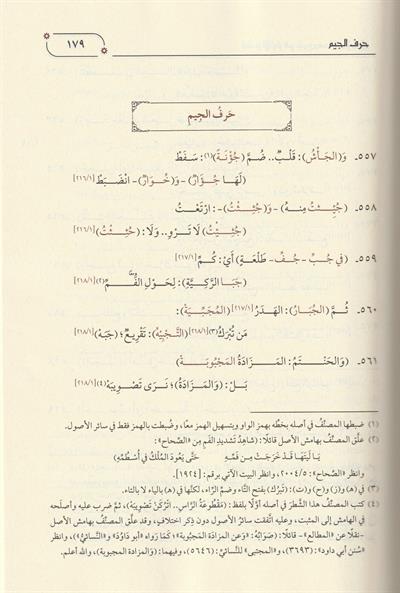 حرف الجيم
١٧٩
حَرفُ الجِيمِ
٥٥٧. وَ(الجَأْشُ): قَلْبٌ.. ضُمَّ (جُؤْنَةٌ)(١): سَفَطْ
(لَهَا جُوَارٌ)- وَ(خُوَارٌ)- انْضَبَطْ [٢١٦/١]
٥٥٨. (جُئِثْتُ مِنهُ) -وَ(جُثِثْتُ)-: ارْتَعْتُ
(جُئِيْتُ) لَا تَرْوِ.. وَلَا: (حُثِثْتُ) [٢١٦/١]
٥٥٩. (في جُبِّ - جُفِّ- طَلْعَةٍ) أَيْ: كُمِّ [٢١٧/١]
(جَبَا الرَّكِيَّةِ): لِحَوْلِ الفُمِّ(٢) [٢١٨/١]
٥٦٠. ثُمَّ (الجُبَارُ): الهَدَرُ [٢١٧/١] (المُجَبِّيَة):
مَن تُبْرَكُ(٣) [٢١٨/١] (التَّجْبِيَه): تَقْرِيعٌ؛ (جَبَهْ) [٢١٨/١]
٥٦١. (وَالحَنْتَمُ: المَزَادَةُ المَجْبُوبَةْ)
بَلْ: (وَالمَزَادَةُ)؛ نَرَى تَصْوِيبَهْ(٤) [٢١٨/١]
(١) ضبطها المصنِّف في أصله بخطِّه بهمز الواو وبتسهيل الهمز معًا، وضُبطت بالهمز فقط في سائر الأصول.
(٢) علَّق المصنِّف بهامش الأصل قائلًا: (شاهِدُ تشديدِ الفَمِ مِن «الصِّحاح»:
يَا لَيْتَهَا قَدْ خَرَجَتْ مِن فُمِّهِ حَتَّى يَعُودَ المُلْكُ فِي أُسْطُمِّهِ)
وانظر «الصِّحاح»: ٢٠٠٤/٥، وانظر البيت الآتي برقم: [١٩٢٤].
(٣) في (هـ) و(ز) و(ح) و(ت): (تَبْرُك) بفتح التَّاء وضمِّ الرَّاء، لكنَّها في (هـ) بالياء لا بالتاء.
(٤) كتب المصنِّف هذا الشَّطرَ في أصله أوَّلًا بلفظ: (مَقْطُوعَةُ الرَّاسِ.. اتْرُكَنْ تَصْوِيبَهْ)، ثمَّ ضرب عليه وأصلَحه
في الهامش إلى المثبت، وعليه اتَّفقت سائرُ الأصول دون ذكرِ اختلافٍ، وقد علَّق المصنِّف بهامش الأصل
-نقلًا عن «المطالع»- قائلًا: (صَوَابُهُ: «وَعن المَزادَةِ المَجْبُوبَة» كَمَا رَواه «أَبو داوُدَ» و«النَّسائيُّ»)، وانظر
«سُنن أبي داود»: (٣٦٩٣)، و«المجتبى» للنَّسائيِّ: (٥٦٤٦)، وفيهما: (والمَزادة المجبوبة)، والله أعلم.